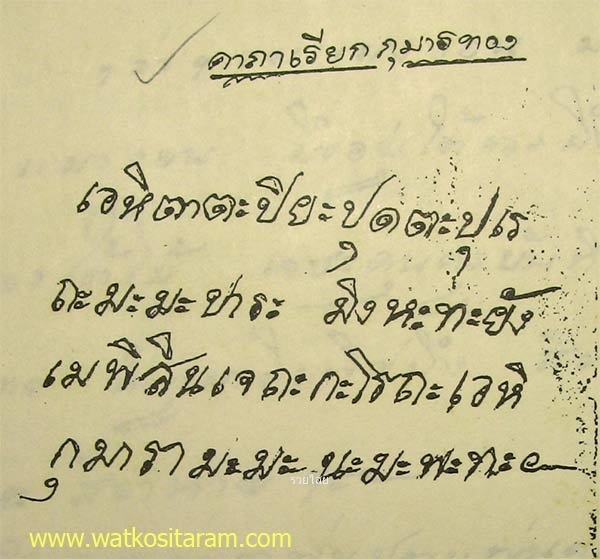 คาถาเรียกกุมารทอง
เอหิตาตะปิยะปุดตะปุเร
ถะมะมะปาระ มิงหะทะยัง
เมพิสีนเจถะกะโรถะเอหิ
กุมารา มะมะ นะมะพะทะ
รวยไอย
www.watkositaram.com